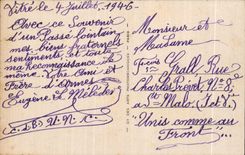 Vitré le 4 Juillet, 1946
Avec ce Souvenir
d'un Passé lointain
mes biens fraternels
sentiments et toute
ma Reconnaissance de
même. Votre Ami et
Frère d'Armes
Eugène et Mélider
Monsieur et
Madame
Grall, Rue
Charles Nº 6
St Malo.
"Unis comme au
Front"...